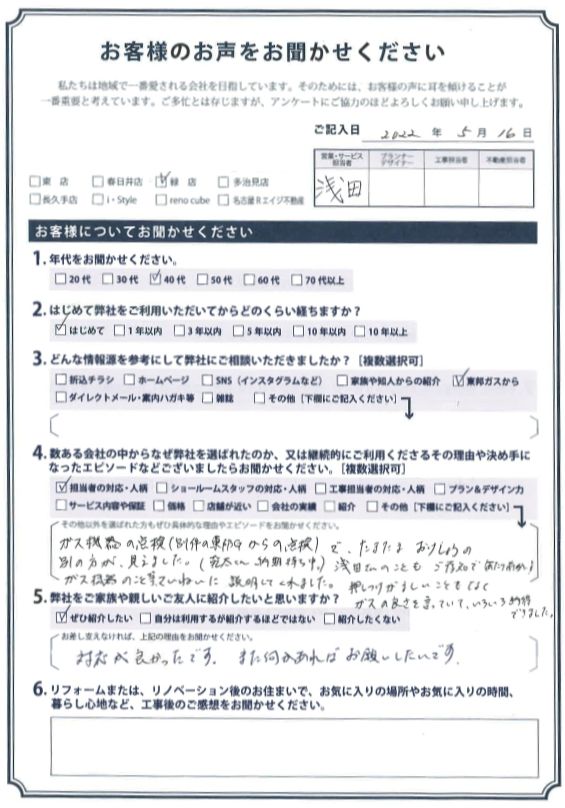 お客様のお声をお聞かせください
私たちは地域で一番愛される会社を目指しています。そのためには、お客様の声に耳を傾けることが
一番重要と考えています。ご多忙とは存じますが、アンケートにご協力のほどよろしくお願い申し上げます。
ご記入日 2022 年 5 月 16 日
営業・サービス担当者 プランナーデザイナー 工事担当者 不動産担当者
浅田
□東 店 □春日井店 ☑緑 店 □多治見店
□長久手店 □i・Style □reno cube □名古屋Rエイジ不動産
お客様についてお聞かせください
1. 年代をお聞かせください。
□20代 □30代 ☑40代 □50代 □60代 □70代以上
2. はじめて弊社をご利用いただいてからどのくらい経ちますか？
☑はじめて □1年以内 □3年以内 □5年以内 □10年以内 □10年以上
3. どんな情報源を参考にして弊社にご相談いただきましたか？［複数選択可］
□折込チラシ □ホームページ □SNS（インスタグラムなど） □家族や知人からの紹介 ☑東邦ガスから
□ダイレクトメール・案内ハガキ等 □雑誌 □その他［下欄にご記入ください］
4. 数ある会社の中からなぜ弊社を選ばれたのか、又は継続的にご利用くださるその理由や決め手に
なったエピソードなどございましたらお聞かせください。［複数選択可］
☑担当者の対応・人柄 □ショールームスタッフの対応・人柄 □工事担当者の対応・人柄 □プラン&デザイン力
□サービス内容や保証 □価格 □店舗が近い □会社の実績 □紹介 □その他［下欄にご記入ください］
その他以外を選ばれた方もぜひ具体的な理由やエピソードをお聞かせください。
ガス機器の点検(別件の東邦Gからの点検)で、たまたま
別の方が、見えました。 浅田さんのことも ご存知で
ガス機器のこと ていねいに 説明してくれました。 押しつけがましいこともなく
ガスの良さを言っていて、いろいろ納得
できました。
5. 弊社をご家族や親しいご友人に紹介したいと思いますか？
☑ぜひ紹介したい □自分は利用するが紹介するほどではない □紹介したくない
お差し支えなければ、上記の理由をお聞かせください。
対応が良かったです。 また何かあれば お願いしたいです。
6. リフォームまたは、リノベーション後のお住まいで、お気に入りの場所やお気に入りの時間、
暮らし心地など、工事後のご感想をお聞かせください。